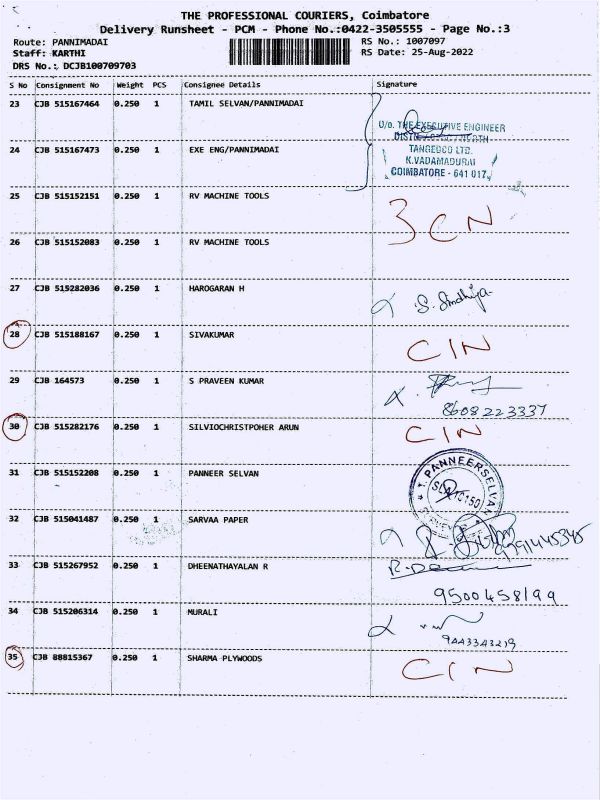 THE PROFESSIONAL COURIERS, Coimbatore
Delivery Runsheet - PCM - Phone No.:0422-3505555 - Page No.:3
Route: PANNIMADAI
Staff: KARTHI
DRS No.: DCJB100709703
RS No.: 1007097
RS Date: 25-Aug-2022
S No Consignment No Weight PCS Consignee Details Signature
23 CJB 515167464 0.250 1 TAMIL SELVAN/PANNIMADAI
O/o. THE EXECUTIVE ENGINEER
24 CJB 515167473 0.250 1 EXE ENG/PANNIMADAI
TANGEDCO LTD.
K.VADAMADURAI
COIMBATORE - 641 017
25 CJB 515152151 0.250 1 RV MACHINE TOOLS
3 CN
26 CJB 515152083 0.250 1 RV MACHINE TOOLS
27 CJB 515282036 0.250 1 HAROGARAN H
S. Sindhiya
28 CJB 515188167 0.250 1 SIVAKUMAR
CIN
29 CJB 164573 0.250 1 S PRAVEEN KUMAR
8608223337
30 CJB 515282176 0.250 1 SILVIOCHRISTPOHER ARUN
CIN
31 CJB 515152208 0.250 1 PANNEER SELVAN
T. PANNEERSELVAN
32 CJB 515041487 0.250 1 SARVAA PAPER
33 CJB 515267952 0.250 1 DHEENATHAYALAN R
9500458199
34 CJB 515206314 0.250 1 MURALI
9443343219
35 CJB 88815367 0.250 1 SHARMA PLYWOODS
CIN